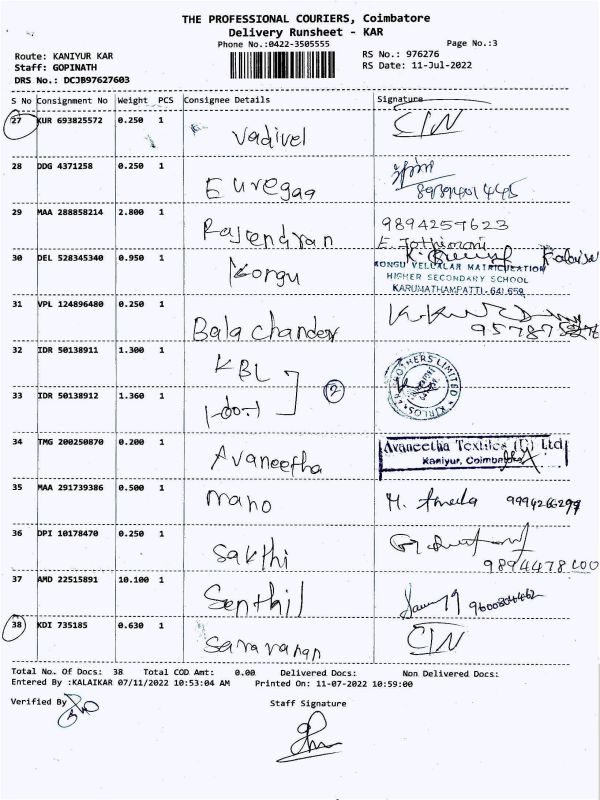 THE PROFESSIONAL COURIERS, Coimbatore
Delivery Runsheet - KAR
Phone No.:0422-3505555
Page No.:3
Route: KANIYUR KAR
RS No.: 976276
Staff: GOPINATH
RS Date: 11-Jul-2022
DRS No.: DCJB97627603
S No Consignment No Weight PCS Consignee Details Signature
27 KUR 693825572 0.250 1 Vadivel
28 DDG 4371258 0.250 1 Euregaa
29 MAA 288858214 2.800 1 Rajendran 9894257623
30 DEL 528345340 0.950 1 Kongu
KONGU VELLALAR MATRICULATION
HIGHER SECONDARY SCHOOL
KARUMATHAMPATTI - 641 659
31 VPL 124896480 0.250 1 Bala chander
32 IDR 50138911 1.300 1 KBL
33 IDR 50138912 1.360 1
2
34 TMG 200250870 0.200 1 Avaneetha
Avaneetha Textiles (P) Ltd
Kaniyur, Coimbatore
35 MAA 291739386 0.500 1 mano 9994266299
36 DPI 10178470 0.250 1 Sakthi
37 AMD 22515891 10.100 1 Senthil
38 KDI 735185 0.630 1 Saravanan
Total No. Of Docs: 38 Total COD Amt: 0.00 Delivered Docs: Non Delivered Docs:
Entered By :KALAIKAR 07/11/2022 10:53:04 AM Printed On: 11-07-2022 10:59:00
Verified By
Staff Signature